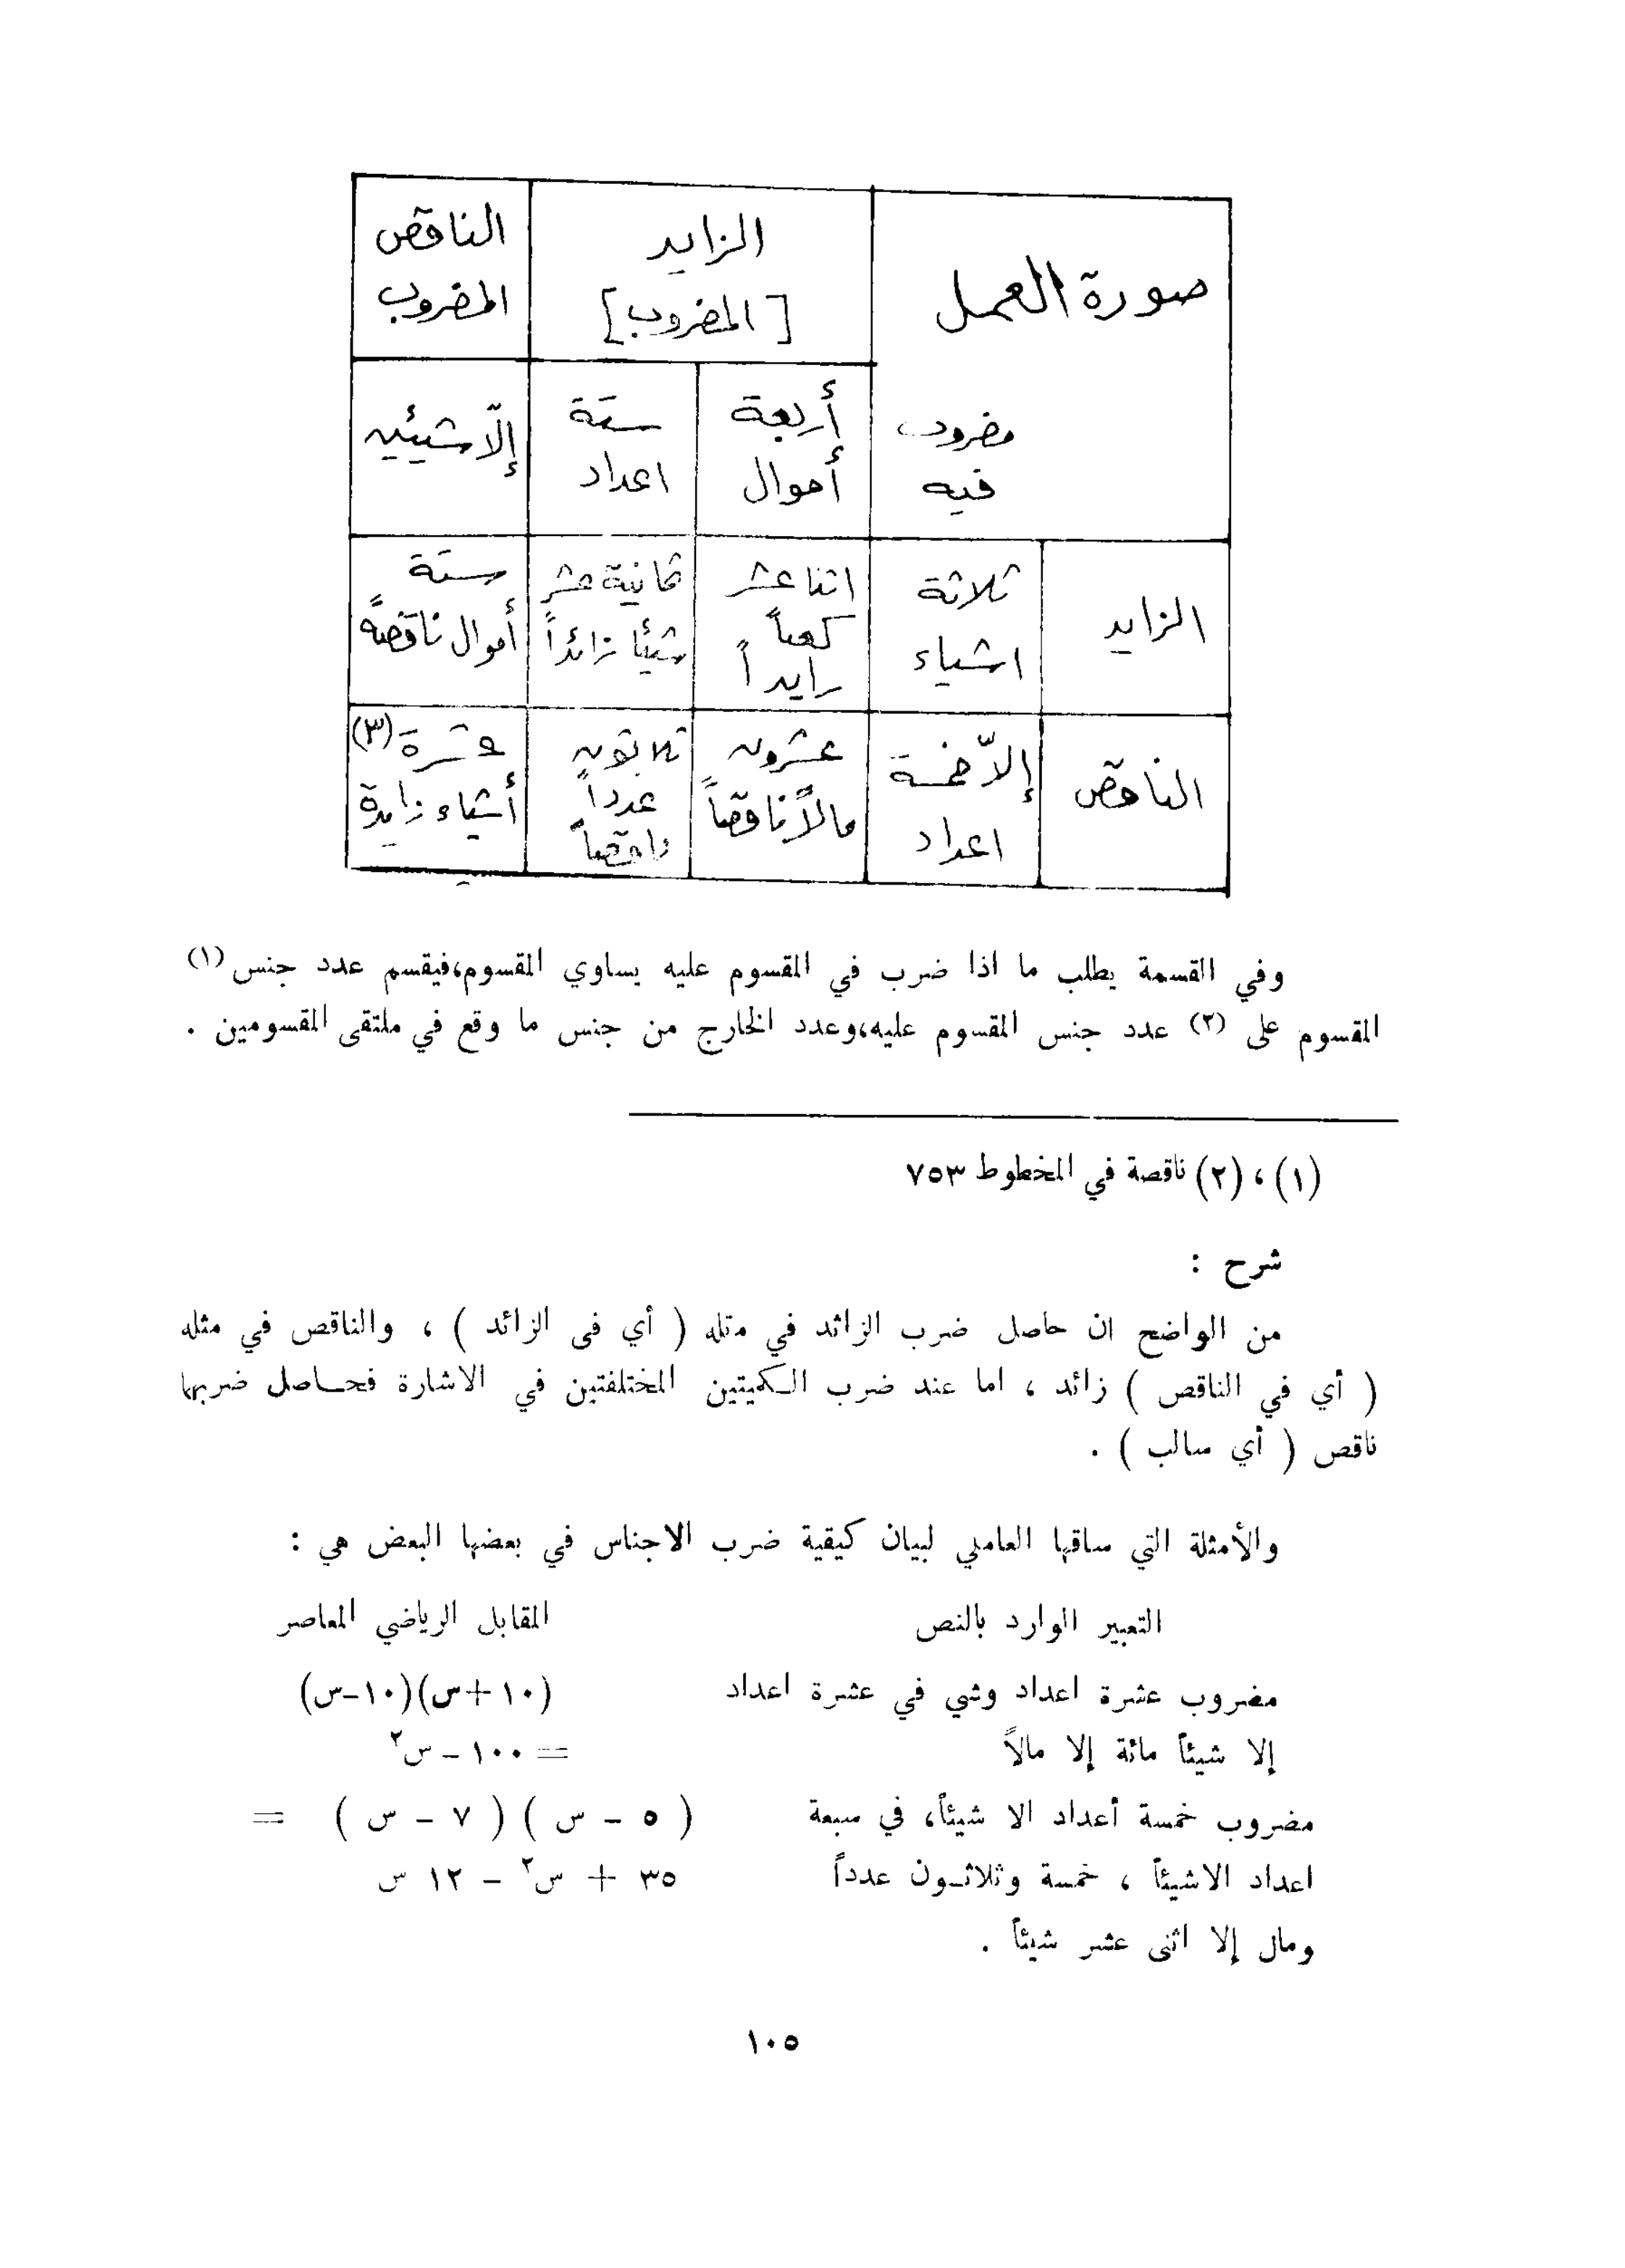 صورة العمل
الزايد
[المضروب]
الناقص
المضروب
مضروب
فيه
أربعة
أموال
ستة
اعداد
إلّا شيئين
الزايد
ثلاثة
اشياء
اثنا عشر
كعباً
زايداً
ثمانية عشر
شيئا زائداً
ستة
أموال ناقصةً
الناقص
إلاّ خمسة
اعداد
عشرون
مالاً ناقصاً
ثلاثون
عدداً
ناقصاً
عشرة (٣)
أشياء زايدة
وفي القسمة يطلب ما اذا ضرب في المقسوم عليه يساوي المقسوم،فيقسم عدد جنس (١)
المقسوم على (٢) عدد جنس المقسوم عليه،وعدد الخارج من جنس ما وقع في ملتقى المقسومين .
(١) ، (٢) ناقصة في المخطوط ٧٥٣
شرح :
من الواضح ان حاصل ضرب الزائد في مثله ( أي في الزائد ) ، والناقص في مثله
( أي في الناقص ) زائد ، اما عند ضرب الكميتين المختلفتين في الاشارة فحاصل ضربها
ناقص ( أي سالب ) .
والأمثلة التي ساقها العاملي لبيان كيقية ضرب الاجناس في بعضها البعض هي :
التعبير الوارد بالنص المقابل الرياضي المعاصر
مضروب عشرة اعداد وشي في عشرة اعداد (١٠+س)(١٠-س)
إلا شيئاً مائة إلا مالاً = ١٠٠ - س٢
مضروب خمسة أعداد الا شيئاً، في سبعة ( ٥ - س ) ( ٧ - س ) =
اعداد الاشيئاً ، خمسة وثلاثون عدداً ٣٥ + س٢ - ١٢ س
ومال إلا اثنى عشر شيئاً .
١٠٥